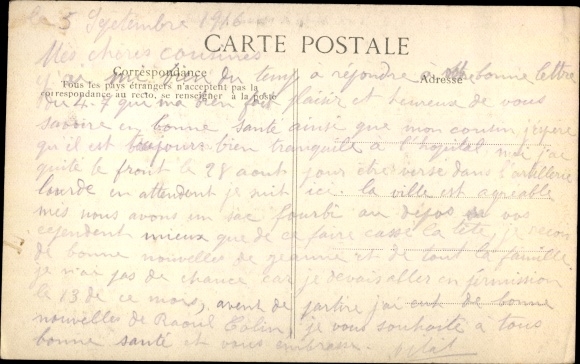 le 5 Septembre 1916
Mes chères cousines
CARTE POSTALE
Correspondance
Tous les pays étrangers n'acceptent pas la
correspondance au recto, se renseigner à la poste
Adresse
j'ai du temp a répondre a bonne lettre
du 4-7 que ma bien fait plaisir et heureux de vous
savoire en bonne santé ainsi que mon cousin j'espere
qu'il est toujours bien tranquille a l'hopital moi j'ai
quité le front le 28 aout pour être versé dans l'artillerie
lourde en attendent je suit ici. la ville est agréable
mis nous avons un sac fourbi au depos
cependent mieux que de ce faire cassé la tête, je recois
de bonne nouvelles de jeanne et de tout la famille
je n'ai pas de chance car je devais aller en permission
le 13 de ce mois, avent de partire j'ai eut de bonne
nouvelles de Raoul Colin je vous souhaite a tous
bonne santé et vous embrasse